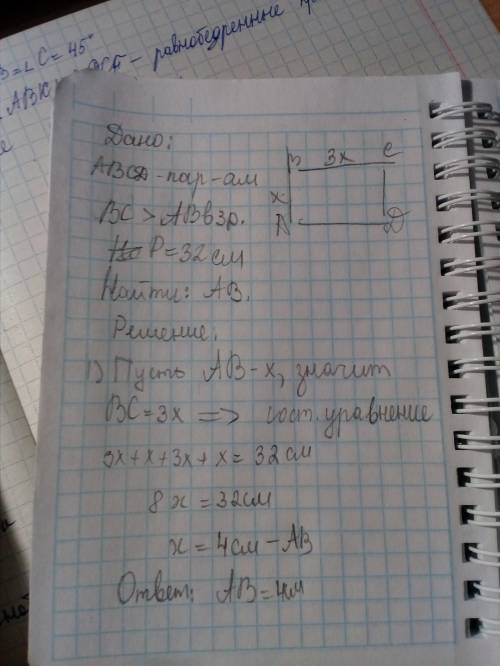 B = ∠ C = 45°
ABK - равнобедренные
Дано:
ABCD - пар-ам
BC > AB в 3 р.
P = 32 см
Найти: AB.
Решение.
1) Пусть AB - x, значит
BC = 3x => сост. уравнение
3x + x + 3x + x = 32 см
8x = 32 см
x = 4 см - AB
Ответ: AB = 4м
B 3x C
x
A D